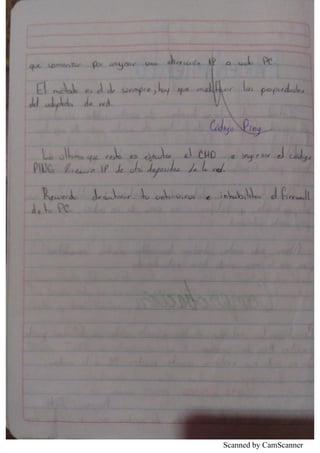 que comenzar por asignar una dirección IP a cada PC.
El método es el de siempre, hay que modificar las propiedades
del adaptador de red.
Código Ping
Lo último que resta es ejecutar el CMD e ingresar el código
PING Dirección IP de otro dispositivo de la red.
Recuerda desactivar tu antivirus e inhabilitar el firewall
de tu PC.
Scanned by CamScanner